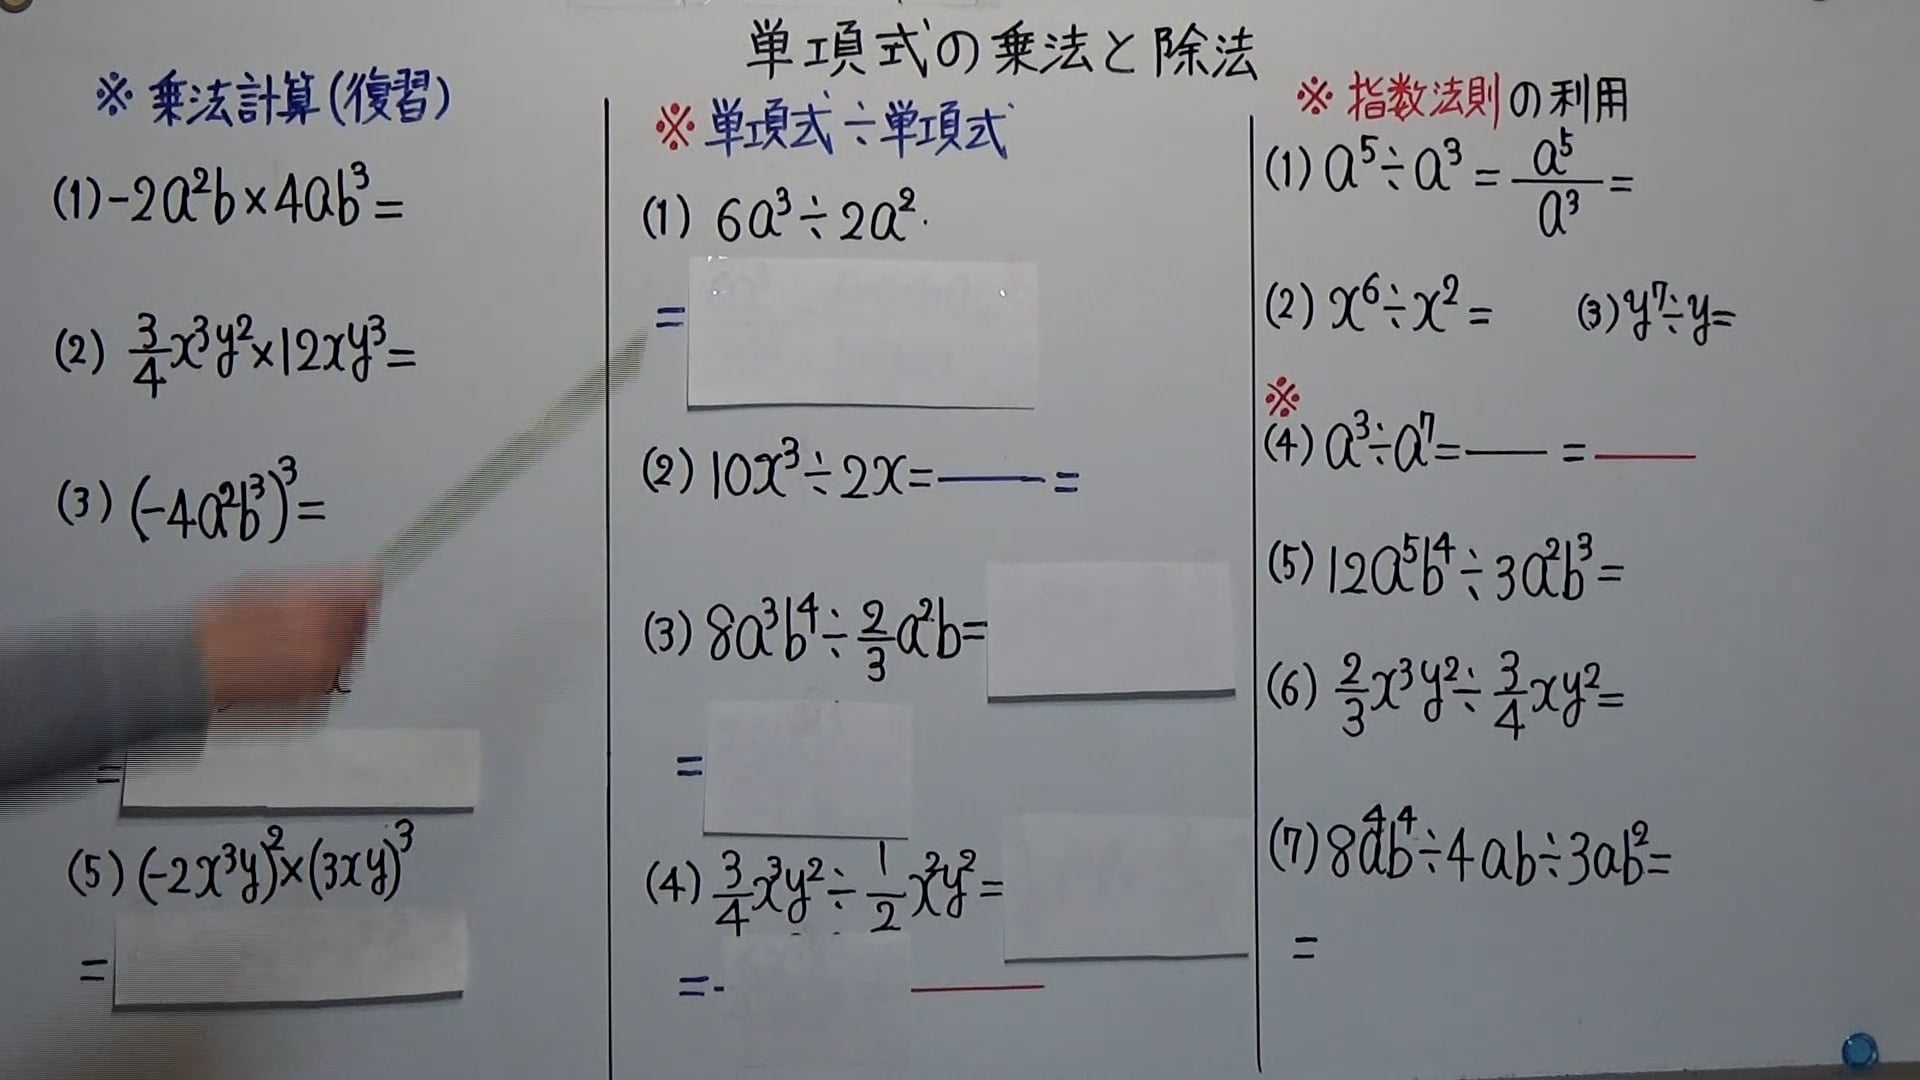 単項式の乗法と除法
※ 乗法計算(復習)
(1) -2a²b×4ab³=
(2) 3/4 x³y²×12xy³=
(3) (-4a²b³)³=
=
(5) (-2x³y)²×(3xy)³
=
※ 単項式÷単項式
(1) 6a³÷2a²
=
(2) 10x³÷2x= =
(3) 8a³b⁴÷2/3 a²b=
=
(4) 3/4 x³y²÷1/2 x²y²=
=
※ 指数法則の利用
(1) a⁵÷a³=a⁵/a³=
(2) x⁶÷x²= (3) y⁷÷y=
※
(4) a³÷a⁷= =
(5) 12a⁵b⁴÷3a²b³=
(6) 2/3 x³y²÷3/4 xy²=
(7) 8a⁴b⁴÷4ab÷3ab²=
=